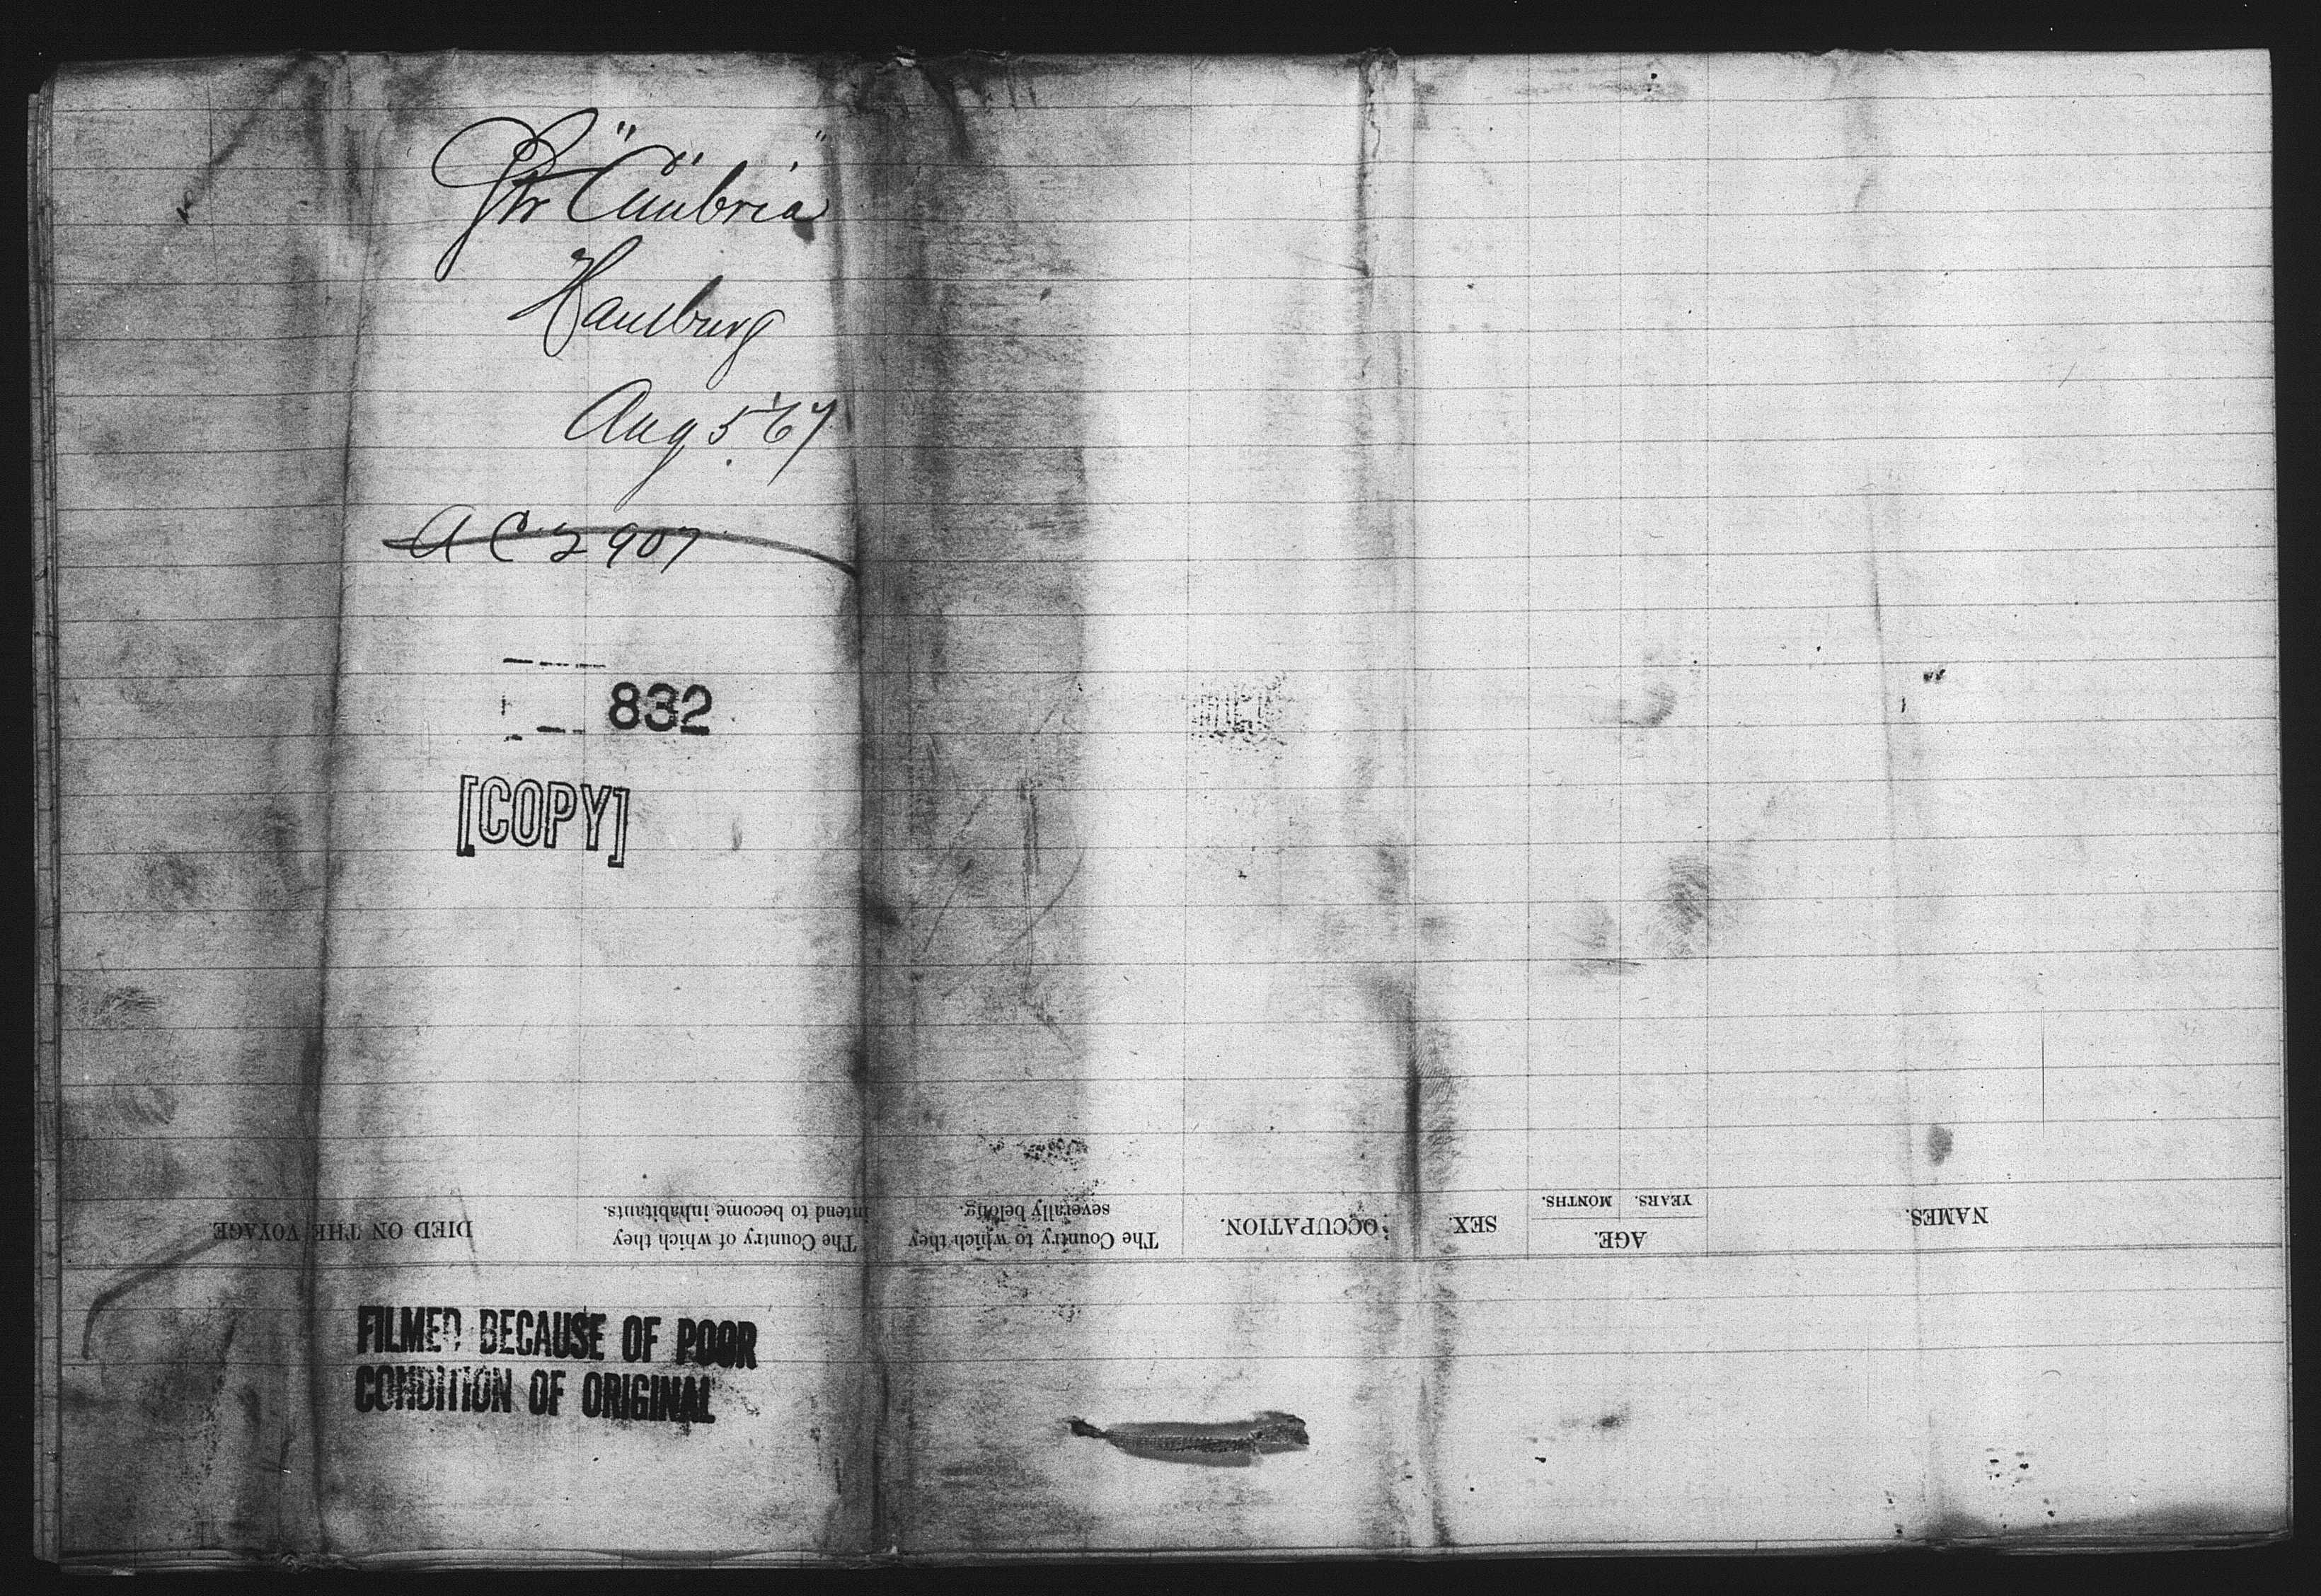 Str "Cimbria"
Hamburg
Aug 5 '67
A C 2907
832
[COPY]
NAMES.
AGE.
YEARS. MONTHS.
SEX.
OCCUPATION.
The Country to which they
severally belong.
The Country of which they
intend to become inhabitants.
DIED ON THE VOYAGE
FILMED BECAUSE OF POOR
CONDITION OF ORIGINAL